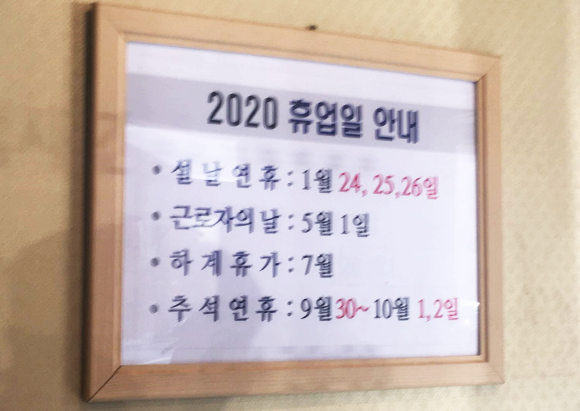 2020 휴업일 안내
• 설 날 연 휴 : 1월 24, 25,26일
• 근로자의 날 : 5월 1일
• 하 계 휴 가 : 7월
• 추 석 연 휴 : 9월30~10월 1,2일